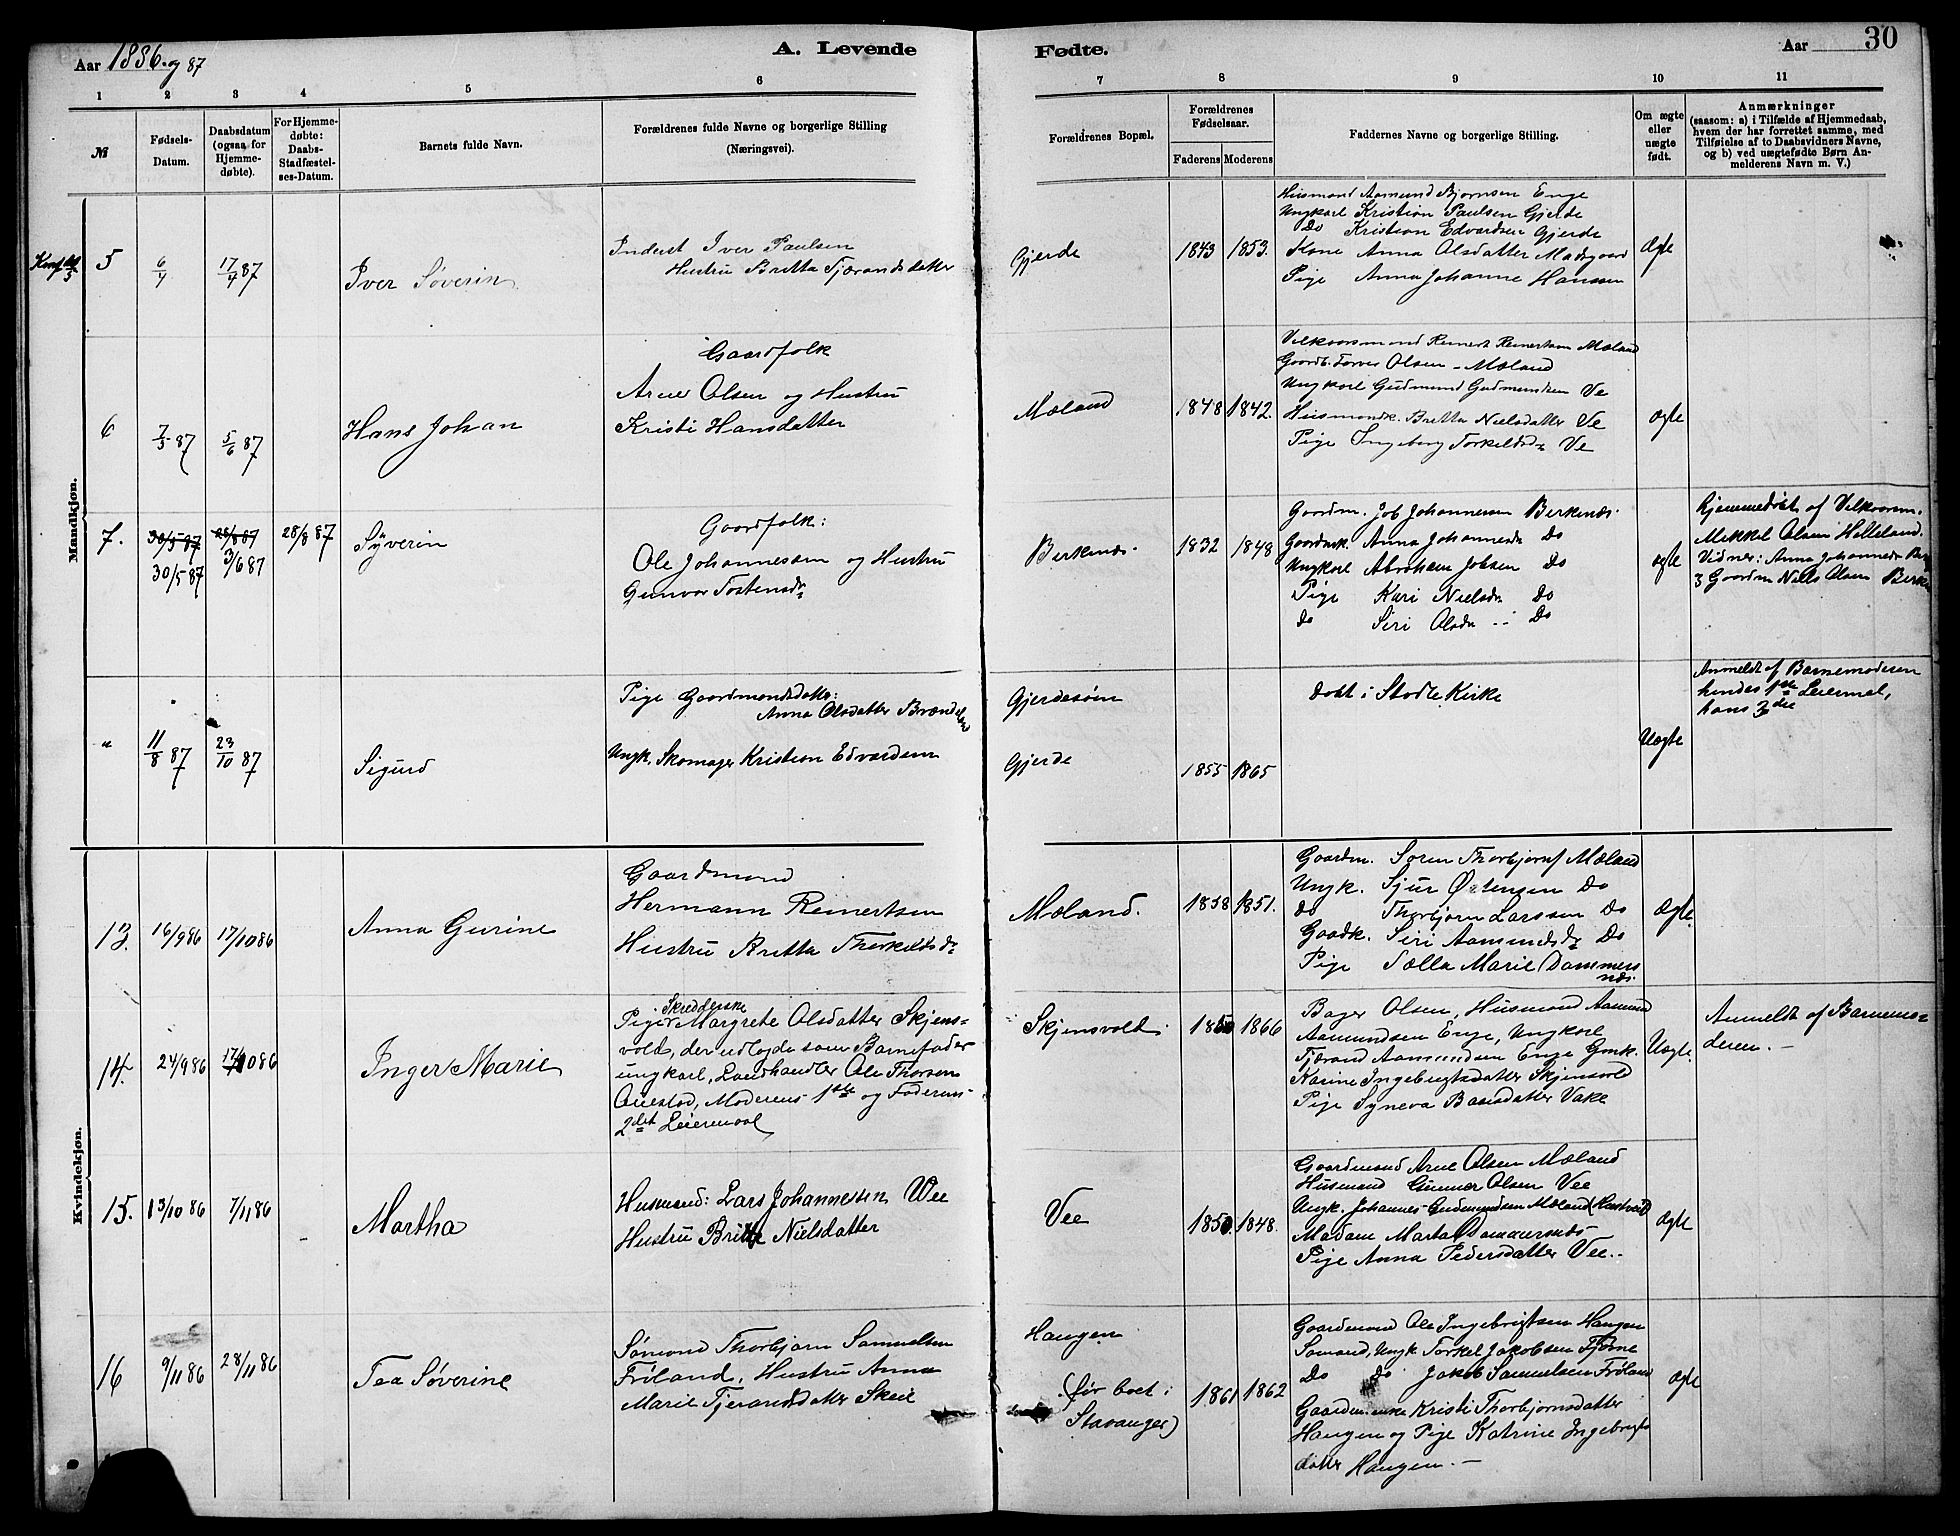 Aar 1886. og 87
A. Levende
Fødte.
Aar
30
1 2 3 4 5 6 7 8 9 10 11
№
Fødsels-
Datum.
Daabsdatum
(ogsaa for
Hjemme-
døbte).
For Hjemme-
døbte:
Daabs-
Stadfæstel-
ses-Datum.
Barnets fulde Navn.
Forældrenes fulde Navne og borgerlige Stilling
(Næringsvei).
Forældrenes Bopæl.
Forældrenes
Fødselsaar.
Faderens Moderens
Faddernes Navne og borgerlige Stilling.
Om ægte
eller
uægte
født.
Anmærkninger
(saasom: a) i Tilfælde af Hjemmedaab,
hvem der har forrettet samme, med
Tilføielse af to Daabsvidners Navne,
og b) ved uægtefødte Børn An-
melderens Navn m. V.)
Mandkjøn.
5
6/4
17/4 87
Iver Søverin
Inderst Iver Paulsen
Hustru Britta Tjærandsdatter
Gjerde
1843 1853.
Husmand Aamund Bjørnsen Enge
Ungkarl Kristian Paulsen Gjerde
Do Kristian Edvardsen Gjerde
Kone Anna Olsdatter Madsgaard
Pige Anna Johanne Hansen
Ægte
6
7/3 87
5/6 87
Hans Johan
Gaardfolk
Arne Olsen og Hustru
Kristi Hansdatter
Mæland
1848 1842.
Vilkaarsmand Reinert Reinertsen Mæland
Gaardb. Torres Olsen - Mæland
Ungkarl Gudmund Gudmundsen Ve
Husmandk. Britta Nielsdatter Ve
Pige Ingeborg Torkeldsdr Ve
ægte
7.
30/5 87
28/8 87
28/8 87
30/5 87
3/6 87
Syverin
Gaardfolk:
Ole Johannessen og Hustru
Gunvor Tostensdr
Birkenæs
1832 1848
Gaardm. Job Johannesen Birkenæs.
Gaardmk. Anna Johannesdr Do
Ungkarl Abraham Jobsen Do
Pige Kari Nielsdr Do
do Siri Olsdr Do
ægte
Hjemmedøbt af Vilkaarsm.
Mekkel Olsen Helleland.
Vidner: Anna Johannesdr
Gaardm Niels Olsen Birke
"
11/8 87
23/10 87
Sigurd
Pige Gaardmandsdatter:
Anna Olsdatter Brændeland
Ungk. Skomager Kristian Edvardsen
Gjerdesøen
Gjerde
1855 1865
Døbt i Stodle Kirke
Uægte
Anmeldt af Barnemoderen
hendes 1ste Leiermaal,
hans 3die
Kvindekjøn.
13.
16/9 86
17/10 86
Anna Gurine
Gaardmand
Hermann Reinertsen
Hustru Britta Thorkeldsdr
Mæland.
1858 1851.
Gaardm. Soren Thorbjørns Mæland
Ungk. Sjur Østensen Do
do Thorbjørn Larssen Do
Gaadk. Siri Aamundsdr Do
Pige Sælla Marie Dammers
næs.
Ægte.
14.
24/9 86
17/10 86
Inger Marie
Skrædderske
Pige Margrete Olsdatter Skjens-
vold, der udlagde som Barnefader
ungkarl, Landhandler Ole Thorsen
Ouestad, Moderens 1ste og Faderens
2det Leiermaal
Skjensvold
1850 1866
Bager Olsen, Husmand Aamund
Aamundsen Enge, Ungkarl
Tjærand Aamundsen Enge Gmk.
Karine Ingebrigtsdatter Skjensvold
Pige Syneva Baarsdatter Vake
Uægte.
Anmeldt af Barnemo-
deren. -
15.
13/10 86
7/11 86
Martha
Husmand: Lars Johannessen Vee
Hustru Britte Nielsdatter
Vee
1850. 1848.
Gaardmand Arne Olsen Mæland
Husmand Gunnar Olsen Vee
Ungk. Johannes Gudmundsen Mæland
Madam Marta Dammersnæs
Pige Anna Pedersdatter Vee..
Ægte
16
9/11 86
28/11 86
Tea Søverine
Sømand Thorbjørn Samuelsen
Frøland, Hustru Anna
Marie Tjerandsdatter Skeie
Haugen
(før boet i
Stavanger)
1861 1862
Gaardmand Ole Ingebrigtsen Haugen
Sømand, Ungk Torkel Jakobsen Fjørne
Do do Jakob Samuelsen Frøland
Gaardm Kristi Thorbjørnsdatter
Haugen og Pige Katrine Ingebrigts
datter Haugen. -
Ægte